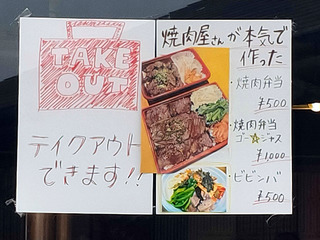 TAKE
OUT
テイクアウト
できます!!
焼肉屋さんが本気で
作った
・焼肉弁当
¥500
・焼肉弁当
ゴー☆ジャス
¥1,000
・ビビンバ
¥500